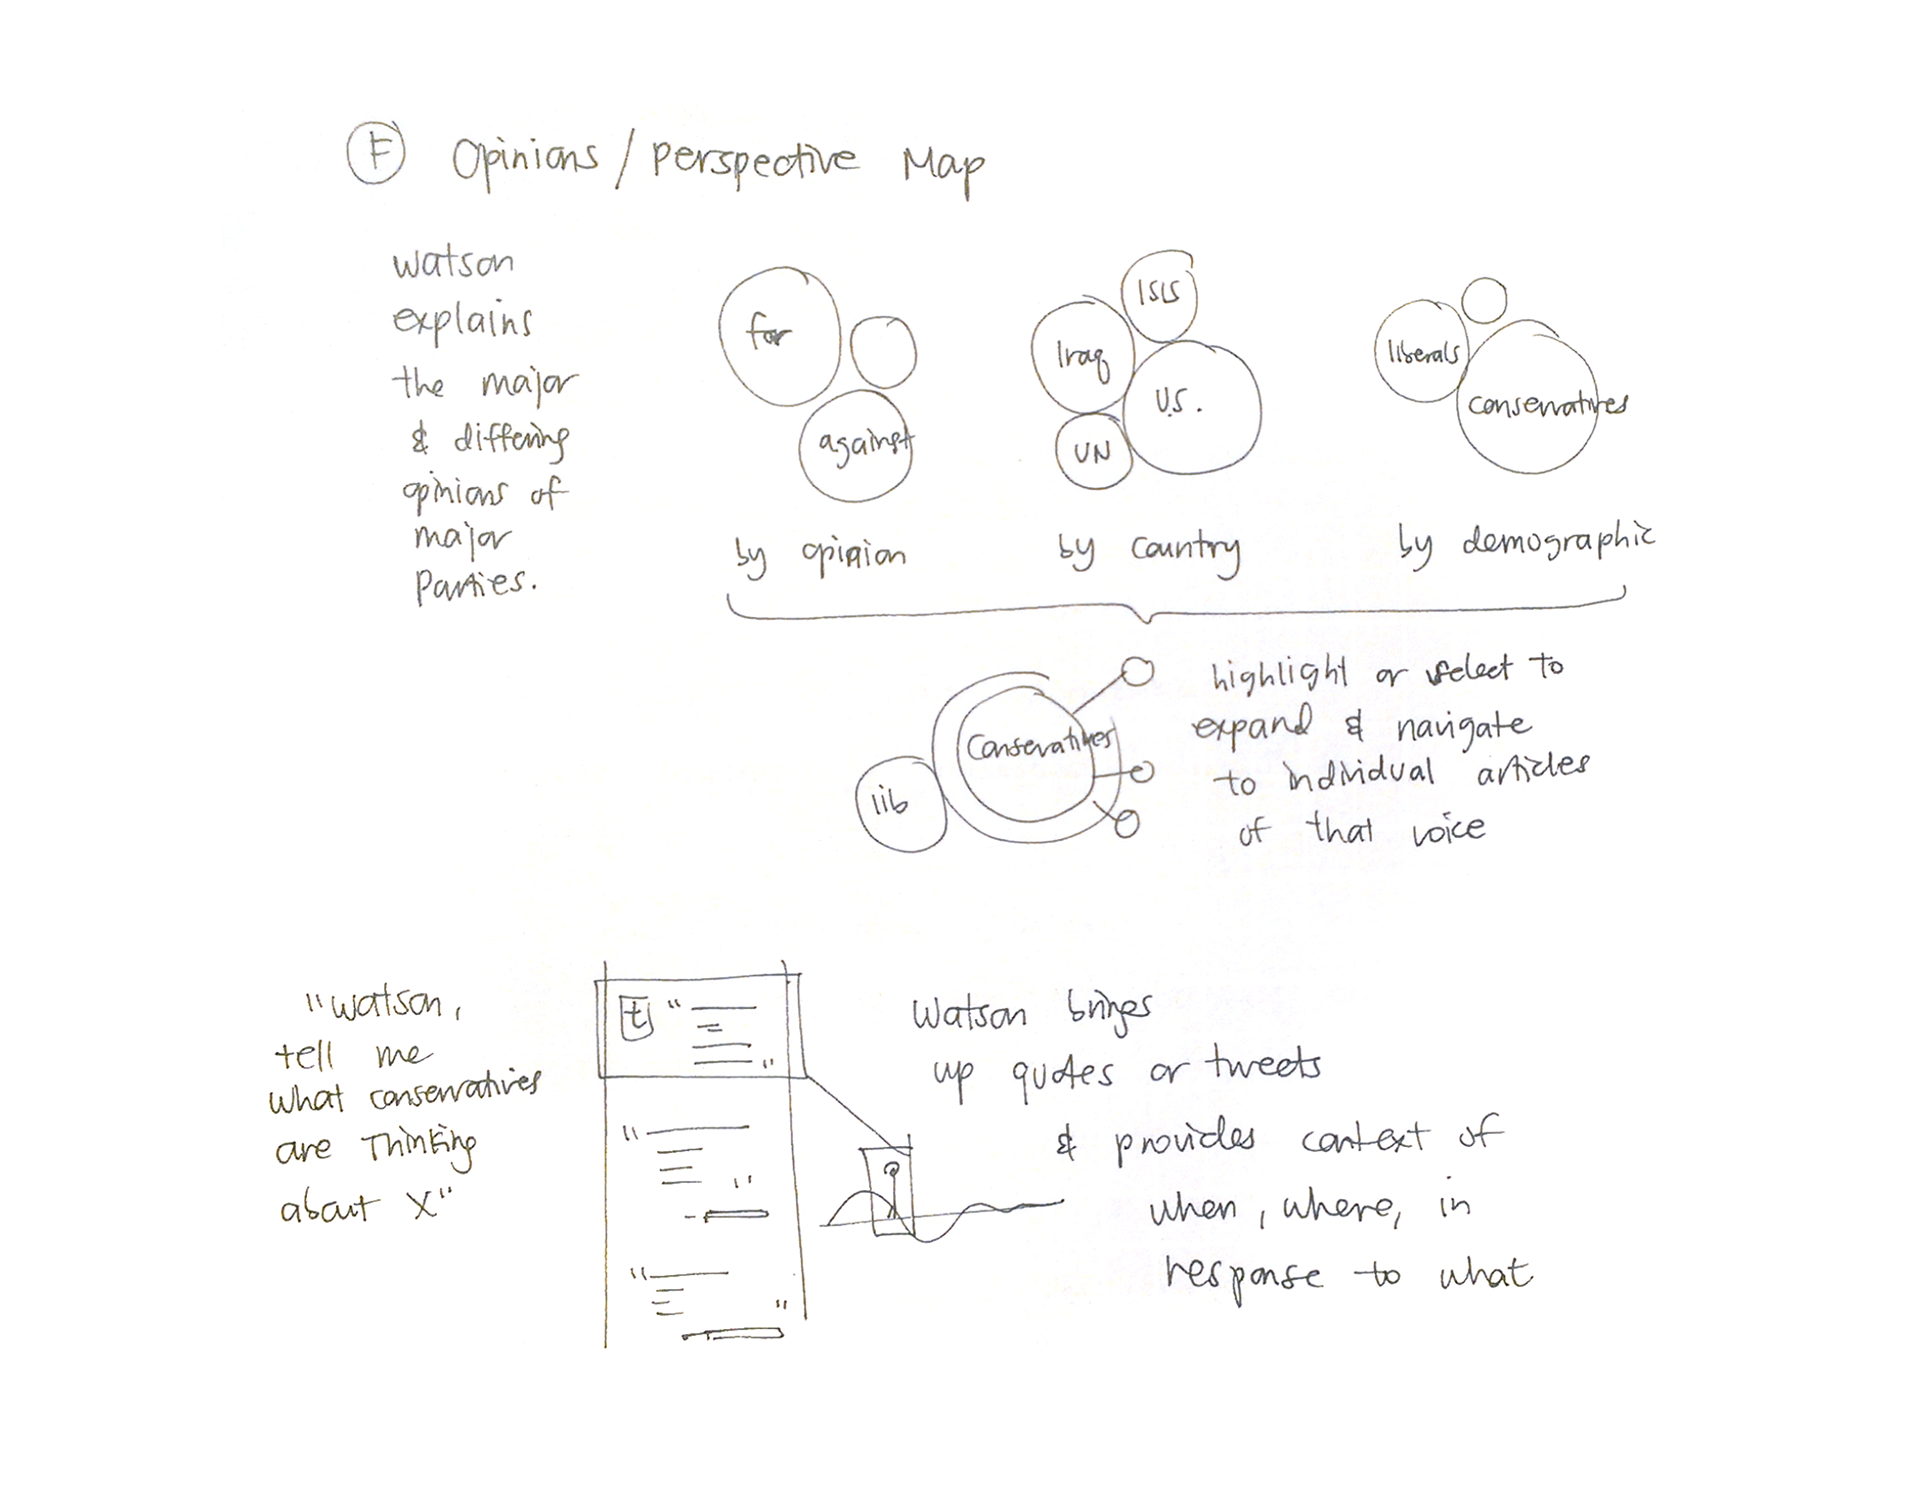 F Opinions / Perspective Map
Watson
explains
the major
& differing
opinions of
major
Parties.
for
against
by opinion
ISIS
Iraq
U.S.
UN
by country
liberals
conservatives
by demographic
Conservatives
lib
highlight or select to
expand & navigate
to individual articles
of that voice
"Watson,
tell me
what conservatives
are Thinking
about X"
t "
"
" "
" "
Watson brings
up quotes or tweets
& provides context of
when, where, in
response to what